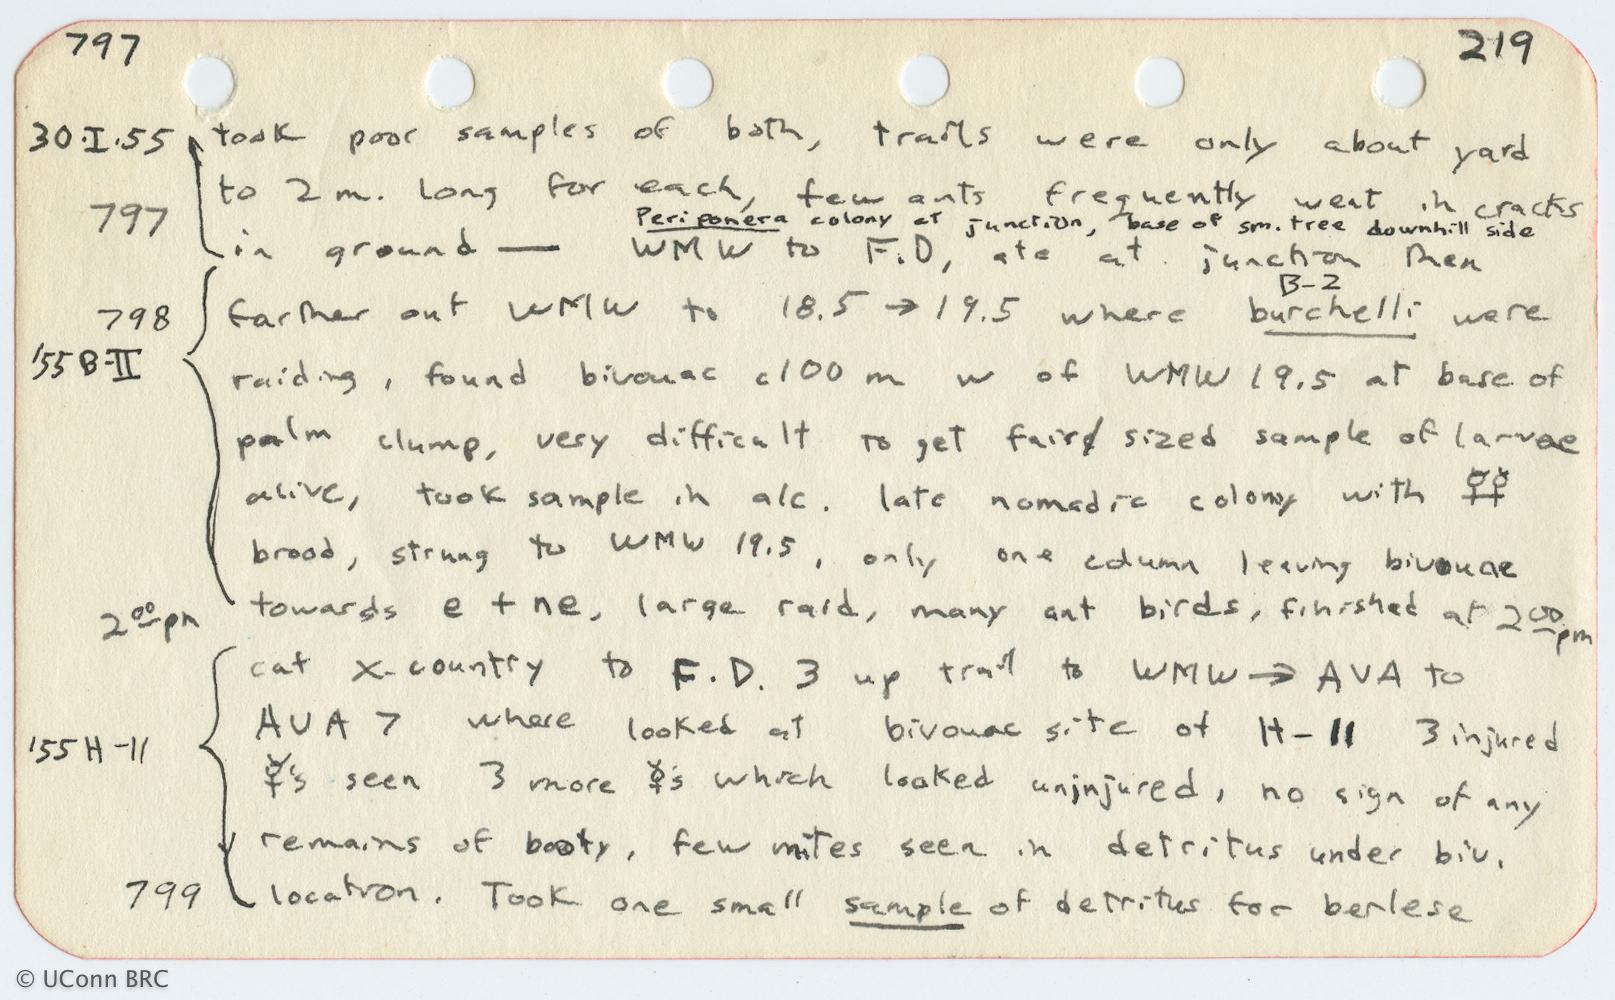 797
219
30.I.55 took poor samples of both, trails were only about yard
to 2 m. long for each, few ants frequently went in cracks
797
Periponera colony at junction, base of sm. tree downhill side
in ground — WMW to F.D, ate at junction then
B-2
798 farther out WMW to 18.5 → 19.5 where burchelli were
'55 B-II raiding, found bivouac c100 m w of WMW 19.5 at base of
palm clump, very difficult to get fair sized sample of larvae
alive, took sample in alc. late nomadic colony with ☿☿
brood, strung to WMW 19.5, only one column leaving bivouac
towards e + ne, large raid, many ant birds, finished at 2 00 pm
2 00 pm
cut x-country to F.D. 3 up trail to WMW → AVA to
AVA 7 where looked at bivouac site of H-11 3 injured
'55 H-11
☿'s seen 3 more ☿'s which looked uninjured, no sign of any
remains of booty, few mites seen in detritus under biv.
799 location. Took one small sample of detritus for berlese
© UConn BRC